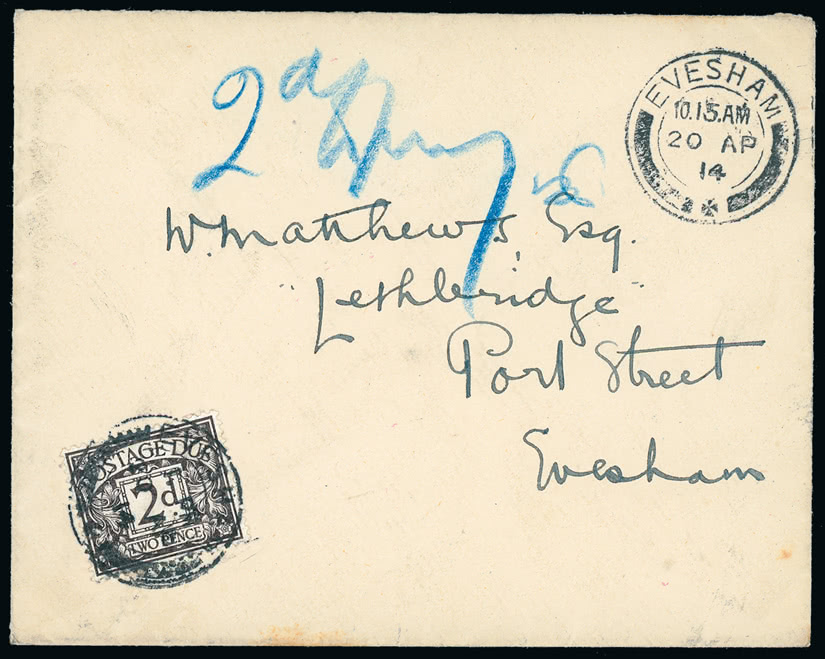 2d
EVESHAM
10.15.AM
20 AP
14
W. Matthews, Esq.
"Lethbridge"
Port Street
Evesham
POSTAGE DUE
2d.
TWO PENCE